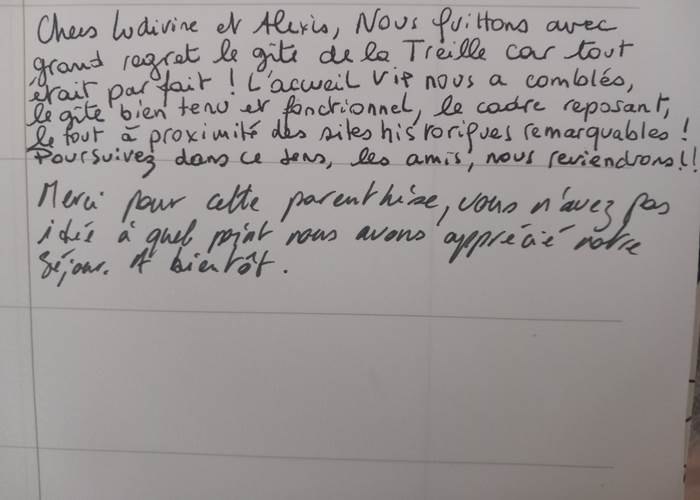 Chers Ludivine et Alexis, Nous quittons avec
grand regret le gîte de la Treille car tout
était parfait ! L'accueil VIP nous a comblés,
le gîte bien tenu et fonctionnel, le cadre reposant,
le tout à proximité des sites historiques remarquables !
Poursuivez dans ce sens, les amis, nous reviendrons !!
Merci pour cette parenthèse, vous n'avez pas
idée à quel point nous avons apprécié notre
séjour. A bientôt.